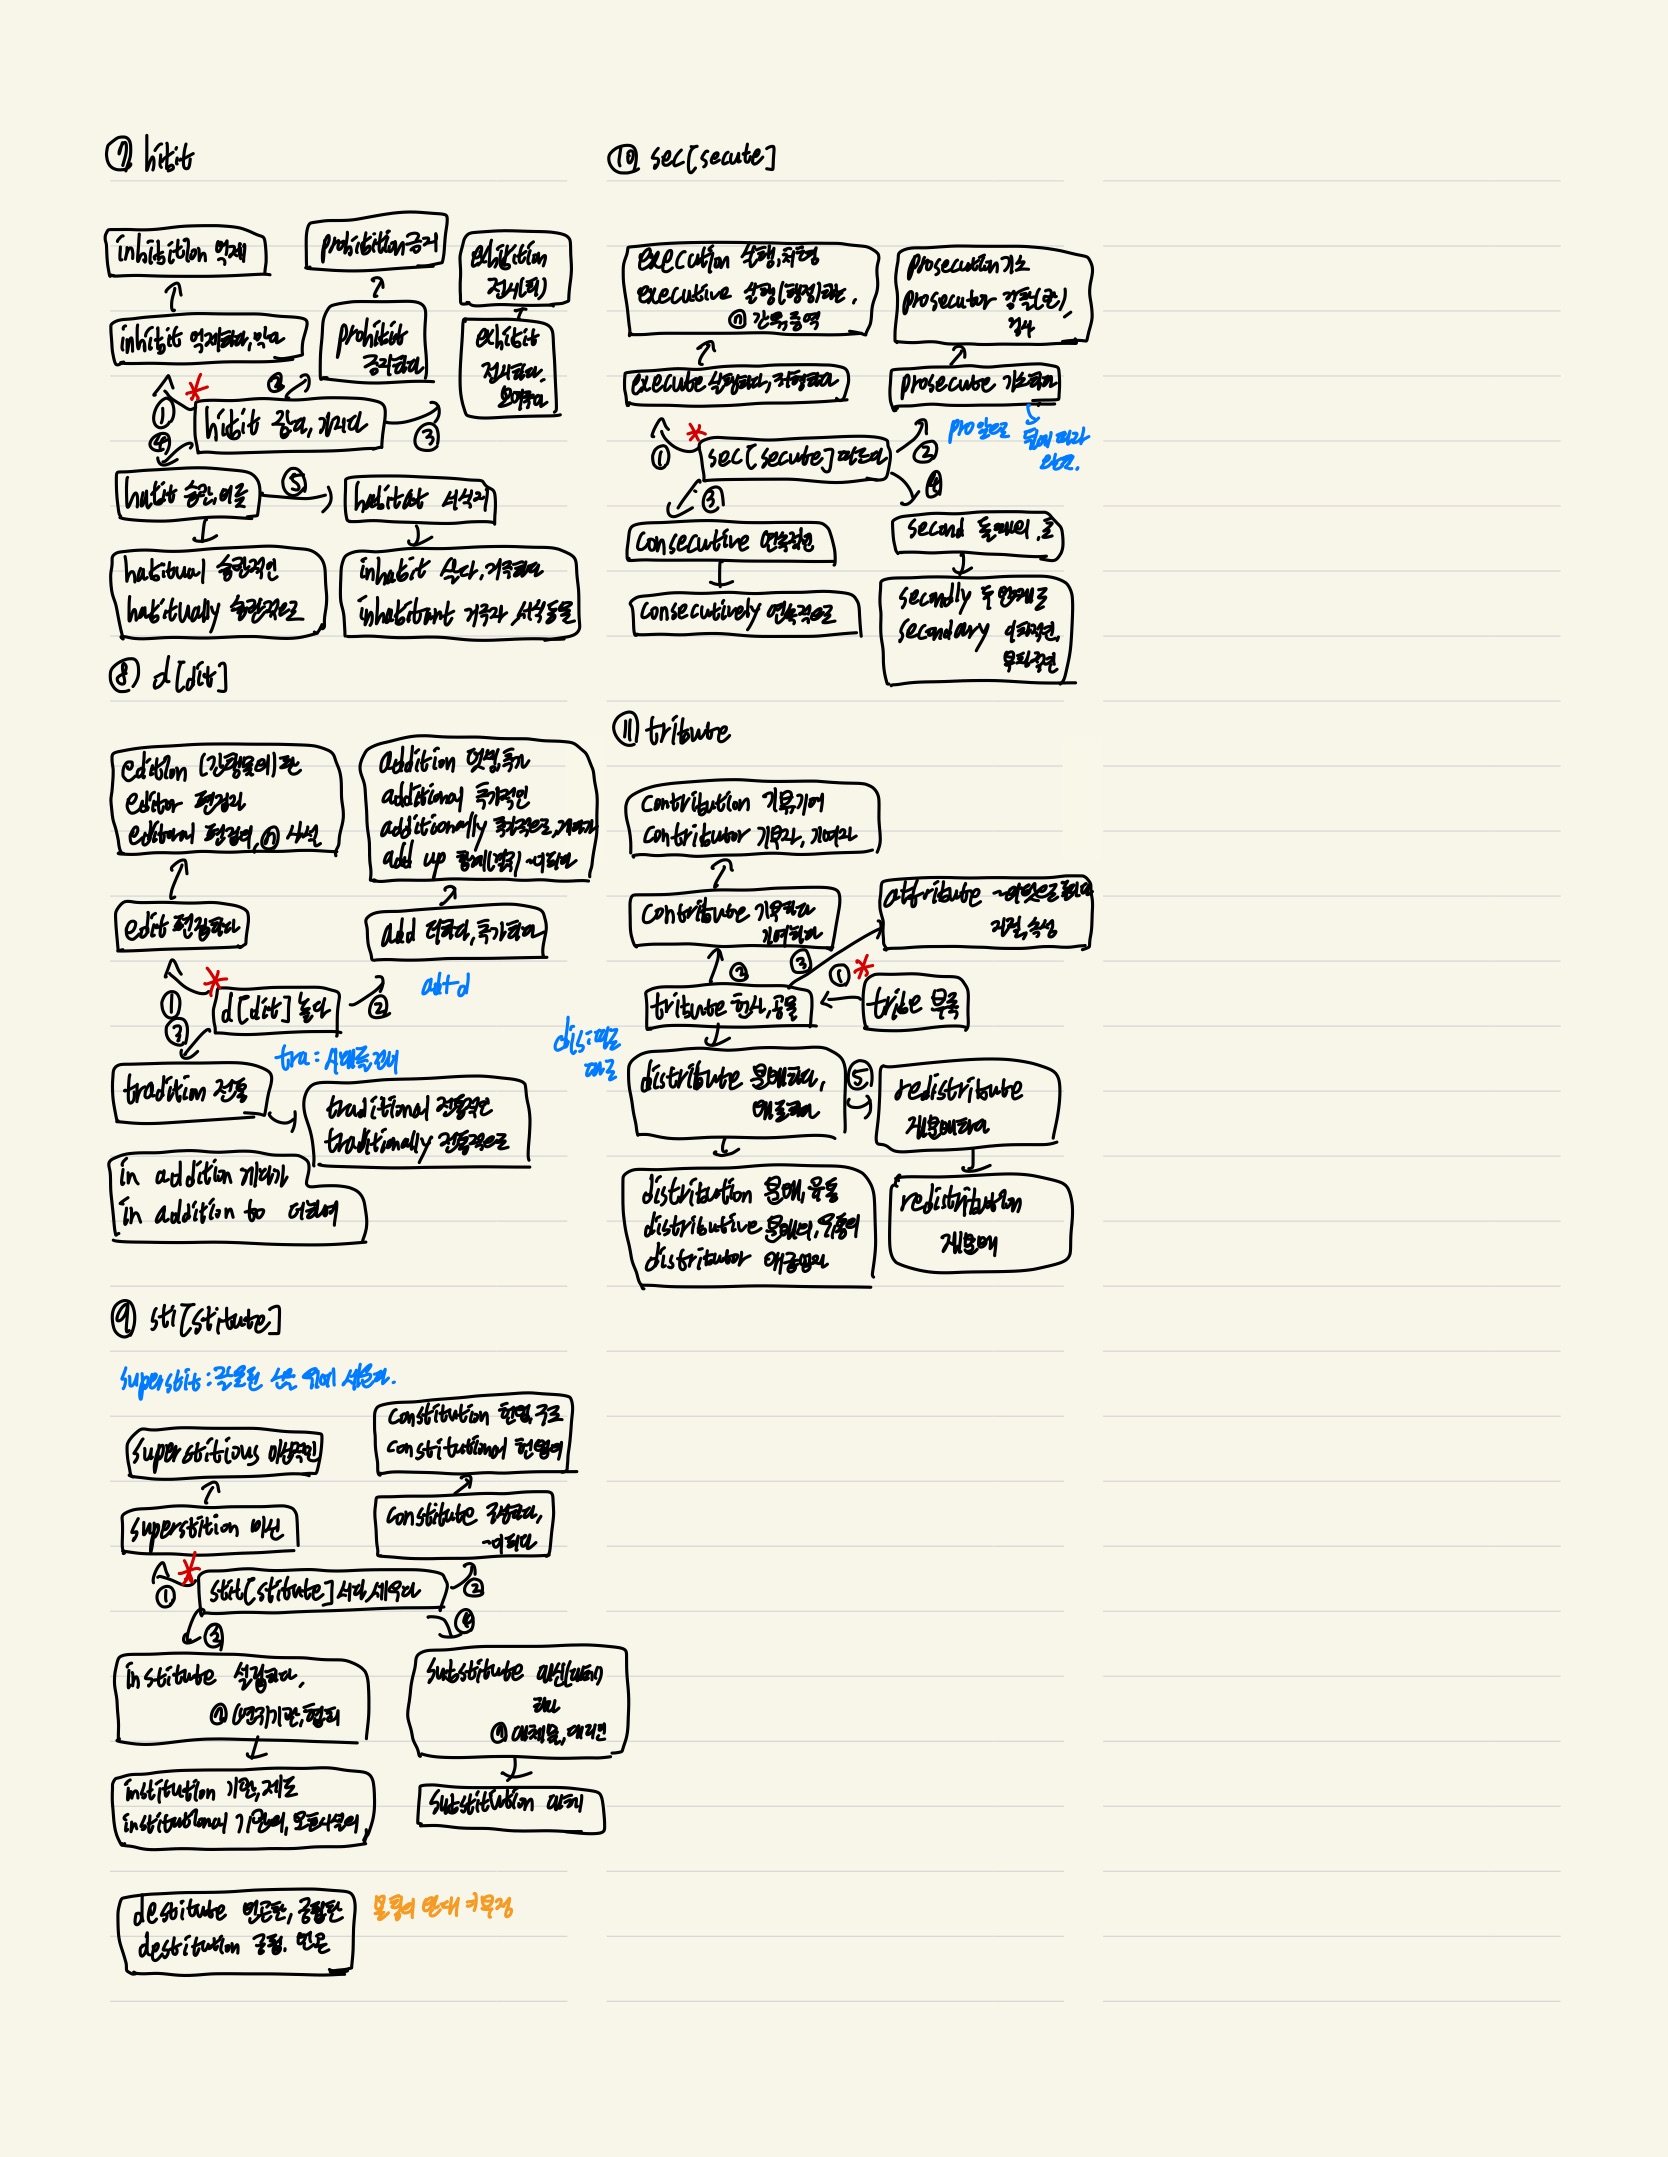 ⑦ hibit
inhibition 억제
prohibition 금지
exhibition
전시(회)
inhibit 억제하다, 막다
prohibit
금지하다
exhibit
전시하다.
보여주다
① * ②
hibit 잡다, 가지다
④ ③
habit 습관, 버릇
⑤
habitat 서식지
habitual 습관적인
habitually 습관적으로
inhabit 살다, 거주하다
inhabitant 거주자 서식동물
⑧ d[dit]
edition (간행물의) 판
editor 편집자
editorial 편집의, ⓝ 사설
addition 덧셈, 추가
additional 추가적인
additionally 추가적으로, 게다가
add up 합계(결국) ~이 되다
edit 편집하다
add 더하다, 추가하다
ad+d
① * ②
d[dit] 놓다
③
tra: 시대를 건너
tradition 전통
traditional 전통적인
traditionally 전통적으로
in addition 게다가
in addition to 더하여
⑨ sti[stitute]
superstit: 위에 세우다.
superstitious 미신적인
constitution 헌법, 구조
constitutional 헌법의
superstition 미신
constitute 구성하다,
~이 되다
① * ②
stit[stitute] 서다, 세우다
③ ④
institute 설립하다,
ⓝ (연구)기관, 협회
substitute 대신(대체)
하다
ⓝ 대체물, 대리인
institution 기관, 제도
institutional 기관의, 보호시설의
substitution 대체
destitute 빈곤한, 궁핍한
destitution 궁핍. 빈곤
⑩ sec[secute]
execution 실행, 처형
executive 실행(행정)하는,
ⓝ 간부, 중역
prosecution 기소
prosecutor 검찰(관),
검사
execute 실행하다, 처형하다
prosecute 기소하다
pro 앞으로
① * ②
sec[secute] 따르다
③ ④
consecutive 연속적인
second 둘째의, 초
consecutively 연속적으로
secondly 두 번째로
secondary 이차적인,
부차적인
⑪ tribute
contribution 기부, 기여
contributor 기부자, 기여자
contribute 기부하다
기여하다
attribute ~의 탓으로 돌리다
기질, 속성
② ③ ① *
tribute 헌사, 공물
tribe 부족
dis: 따로
따로
distribute 분배하다,
배포하다
⑤
redistribute
재분배하다
distribution 분배, 유통
distributive 분배의, 유통의
distributor 배급업자
redistribution
재분배